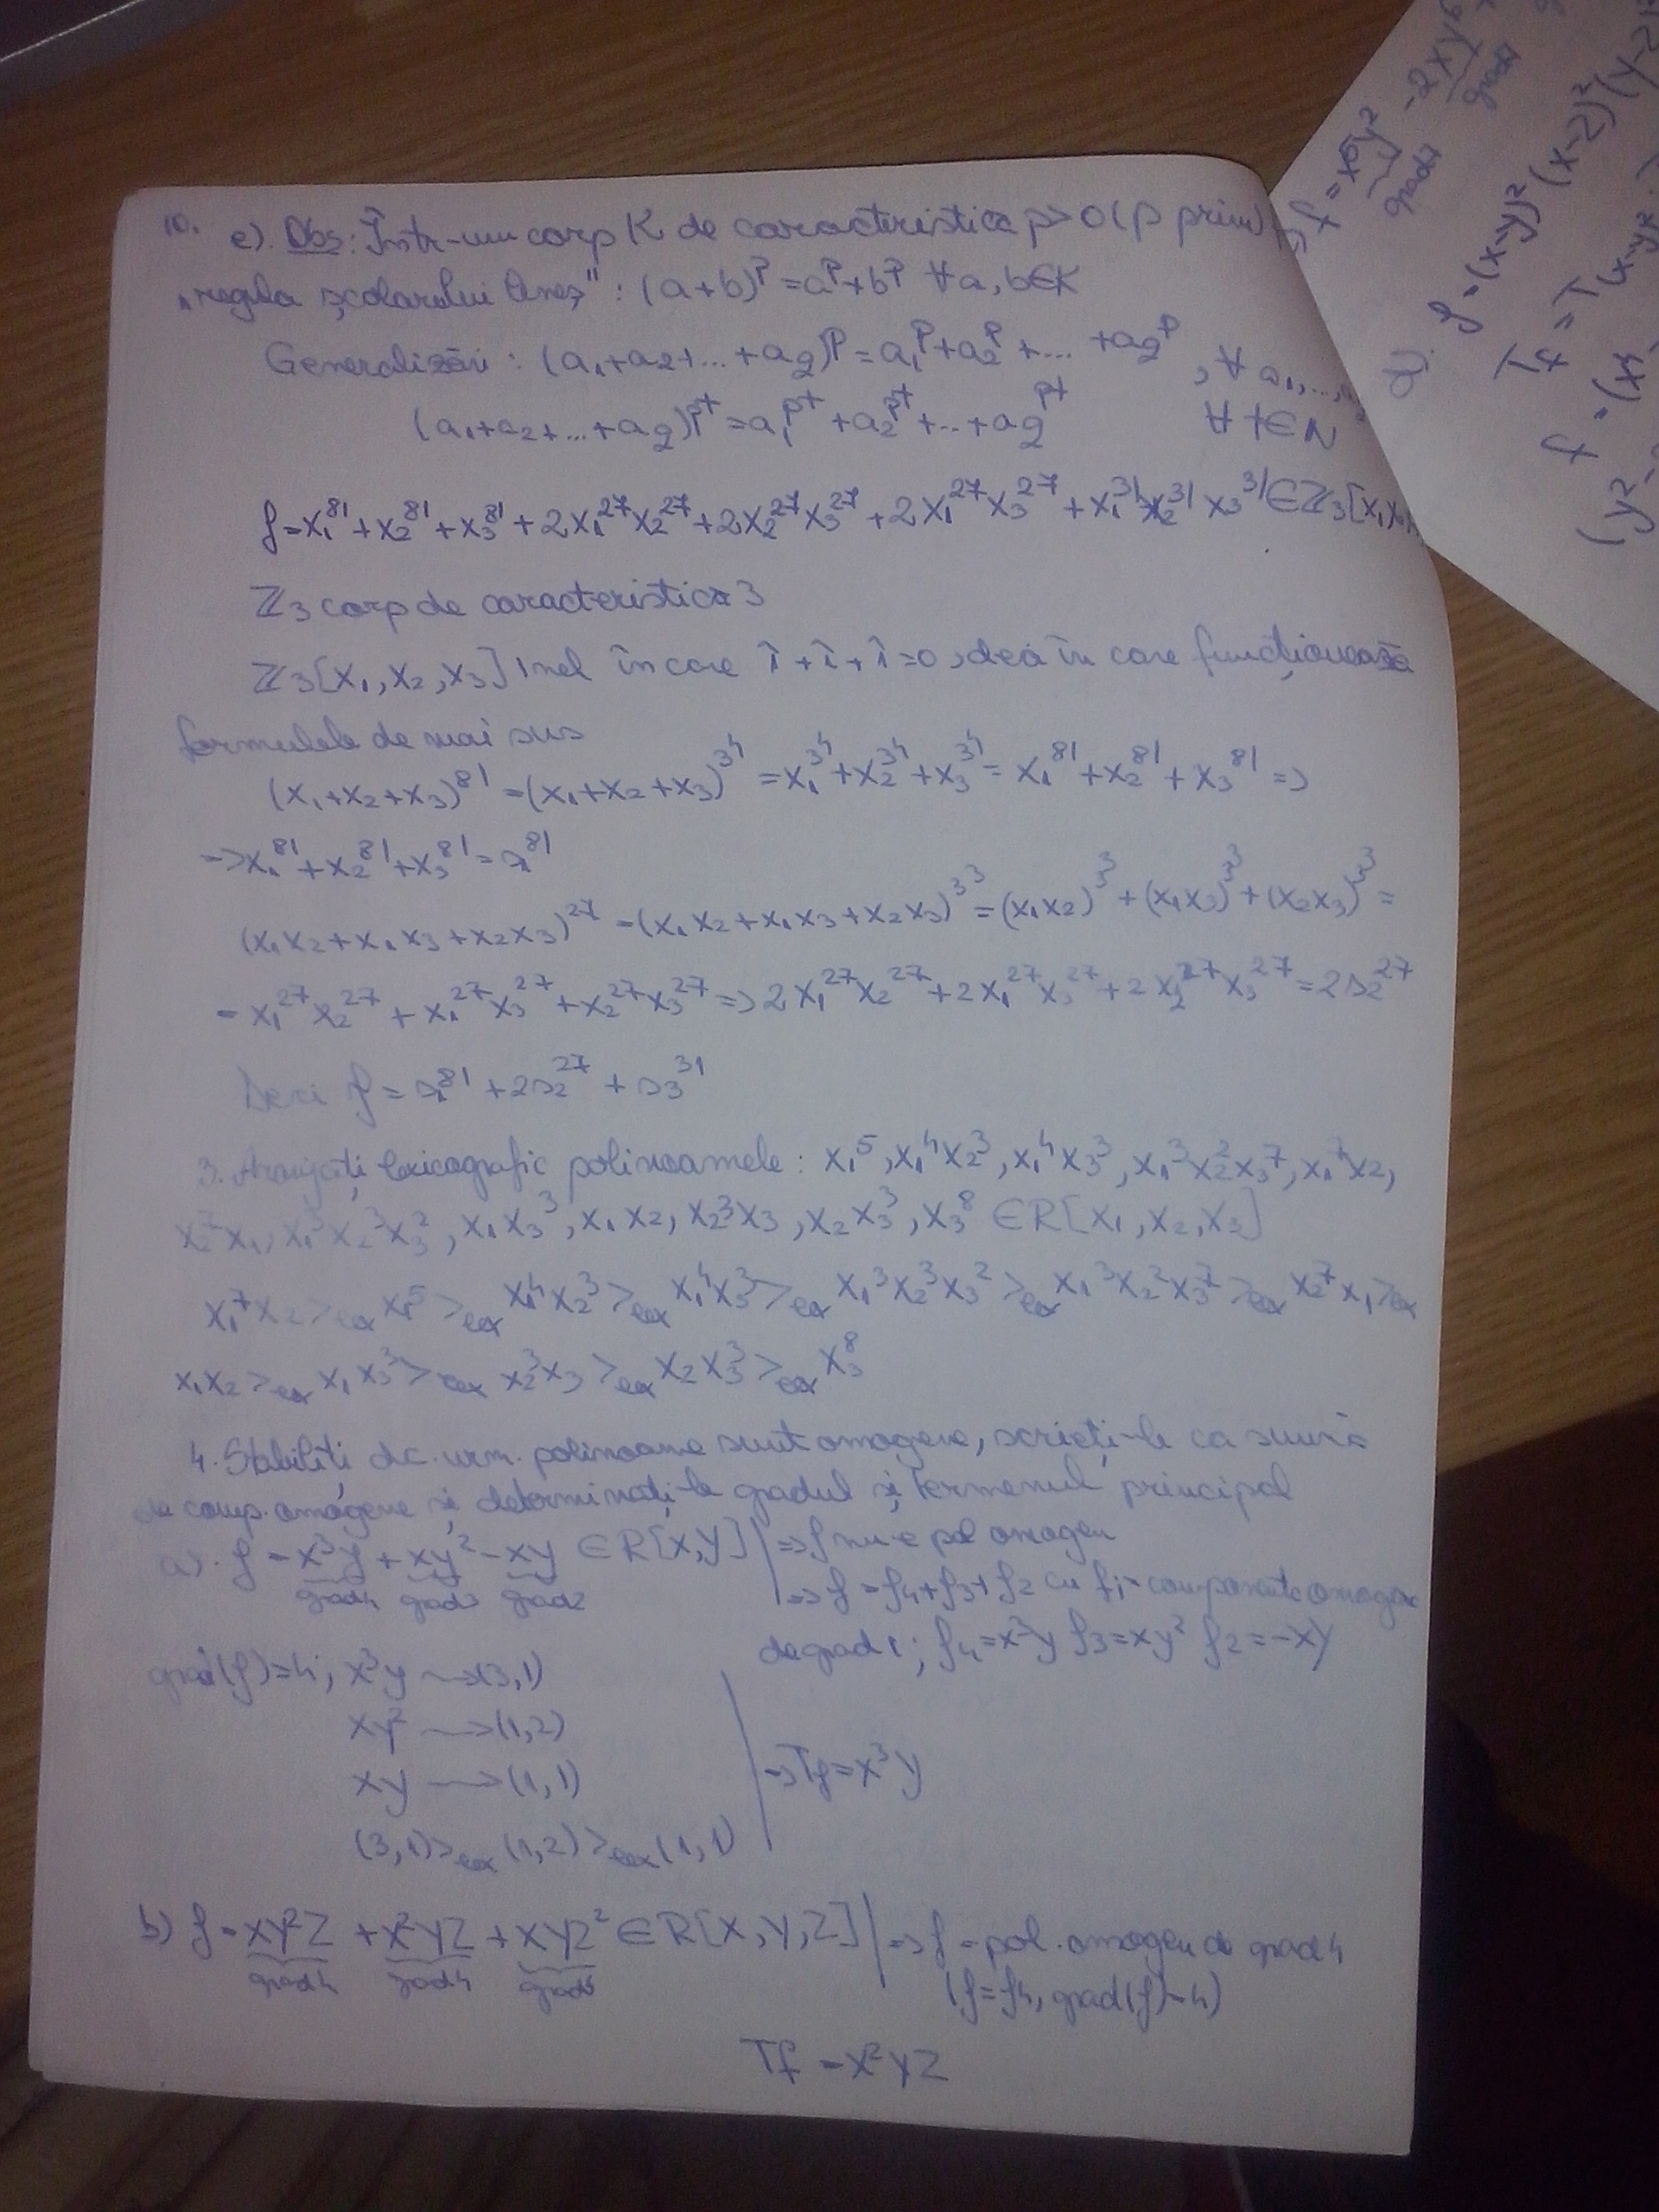 10. e). Obs: Într-un corp K de caracteristica p>0 (p prim)
„regula școlarului leneș": (a+b)^p = a^p+b^p ∀a,b∈K
Generalizări: (a₁+a₂+...+ag)^p = a₁^p+a₂^p+...+ag^p, ∀ a₁,...,
(a₁+a₂+...+ag)^p^t = a₁^p^t+a₂^p^t+...+ag^p^t ∀ t∈N
f = x₁^81+x₂^81+x₃^81+2x₁^27x₂^27+2x₂^27x₃^27+2x₁^27x₃^27+x₁^31x₂^31x₃^31∈ℤ₃[x₁,x₂,
ℤ₃ corp de caracteristica 3
ℤ₃[x₁,x₂,x₃] inel în care 1̂+1̂+1̂=0, deci în care funcționează
formulele de mai sus
(x₁+x₂+x₃)^81 = (x₁+x₂+x₃)^3^4 = x₁^3^4+x₂^3^4+x₃^3^4 = x₁^81+x₂^81+x₃^81 =>
=> x₁^81+x₂^81+x₃^81 = s₁^81
(x₁x₂+x₁x₃+x₂x₃)^27 = (x₁x₂+x₁x₃+x₂x₃)^3^3 = (x₁x₂)^3^3+(x₁x₃)^3^3+(x₂x₃)^3^3 =
= x₁^27x₂^27+x₁^27x₃^27+x₂^27x₃^27 => 2x₁^27x₂^27+2x₁^27x₃^27+2x₂^27x₃^27 = 2s₂^27
Deci f = s₁^81+2s₂^27+s₃^31
3. Aranjați lexicografic polinoamele: x₁^5, x₁^4x₂^3, x₁^4x₃^3, x₁^3x₂^2x₃^7, x₁^7x₂,
x₂^7x₁, x₁^3x₂^3x₃^2, x₁x₃^3, x₁x₂, x₂^3x₃, x₂x₃^3, x₃^8 ∈R[x₁,x₂,x₃]
x₁^7x₂ >lex x₁^5 >lex x₁^4x₂^3 >lex x₁^4x₃^3 >lex x₁^3x₂^3x₃^2 >lex x₁^3x₂^2x₃^7 >lex x₂^7x₁ >lex
x₁x₂ >lex x₁x₃^3 >lex x₂^3x₃ >lex x₂x₃^3 >lex x₃^8
4. Stabiliți dc. urm. polinoame sunt omogene, scrieți-le ca sumă
de comp. omogene și determinați-le gradul și termenul principal
a). f = x³y+xy²-xy ∈R[x,y] | => f nu e pol omogen
grad4 grad3 grad2 => f = f₄+f₃+f₂ cu fi = componente omogene
de grad i; f₄=x³y f₃=xy² f₂=-xy
grad(f)=4; x³y → (3,1)
xy² → (1,2)
xy → (1,1) => Tf=x³y
(3,1) >lex (1,2) >lex (1,1)
b) f = xy²z+x²yz+xyz² ∈R[x,y,z] | => f = pol. omogen de grad 4
grad4 grad4 (f=f₄, grad(f)=4)
Tf = x²yz
f = x⁵y² -2xy⁶
grad7 grad7
d). f = (x-y)²(x-2)²(y-2)
Tf = T(x-y)².
f = (x²
(y²-